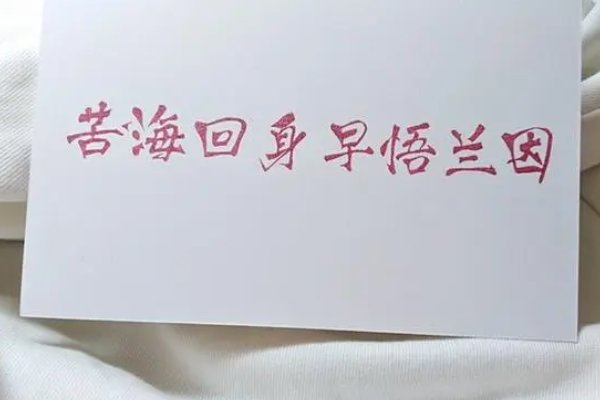 苦海回身早悟兰因